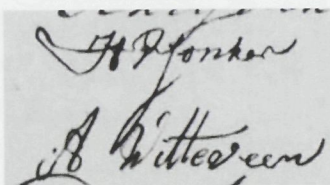 H Jonker
A Witteveen